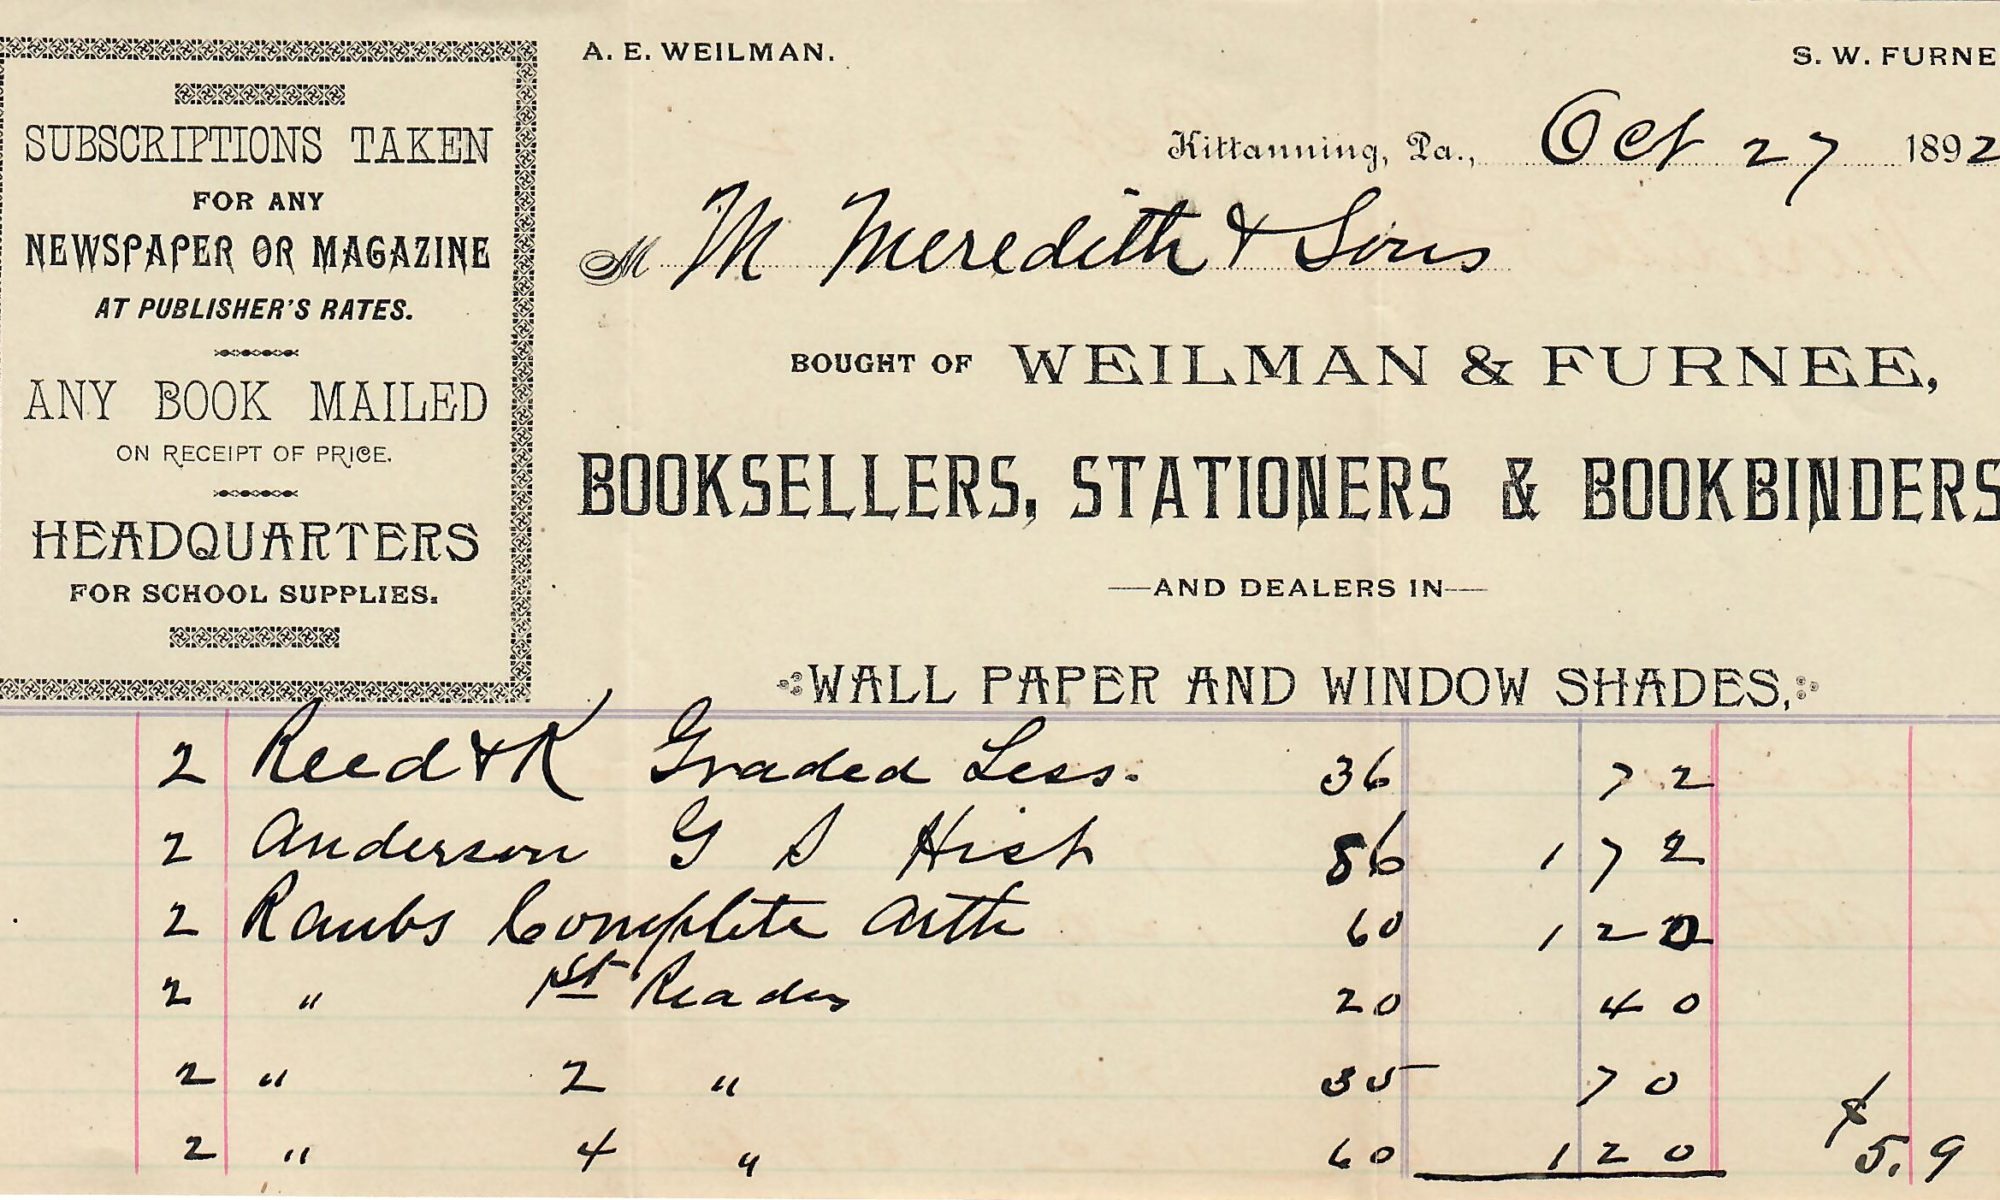 SUBSCRIPTIONS TAKEN
FOR ANY
NEWSPAPER OR MAGAZINE
AT PUBLISHER'S RATES.
ANY BOOK MAILED
ON RECEIPT OF PRICE.
HEADQUARTERS
FOR SCHOOL SUPPLIES.
A. E. WEILMAN. S. W. FURNE
Kittanning, Pa., Oct 27 1892
M M Meredith & Sons
BOUGHT OF WEILMAN & FURNEE,
BOOKSELLERS, STATIONERS & BOOKBINDERS
—AND DEALERS IN—
WALL PAPER AND WINDOW SHADES,
2 Reed & K Graded Less. 36 72
2 Anderson G S Hist 86 1 72
2 Raubs Complete Arith 60 1 20
2 " 1st Reader 20 40
2 " 2 " 35 70
2 " 4 " 60 1 20 $5.9